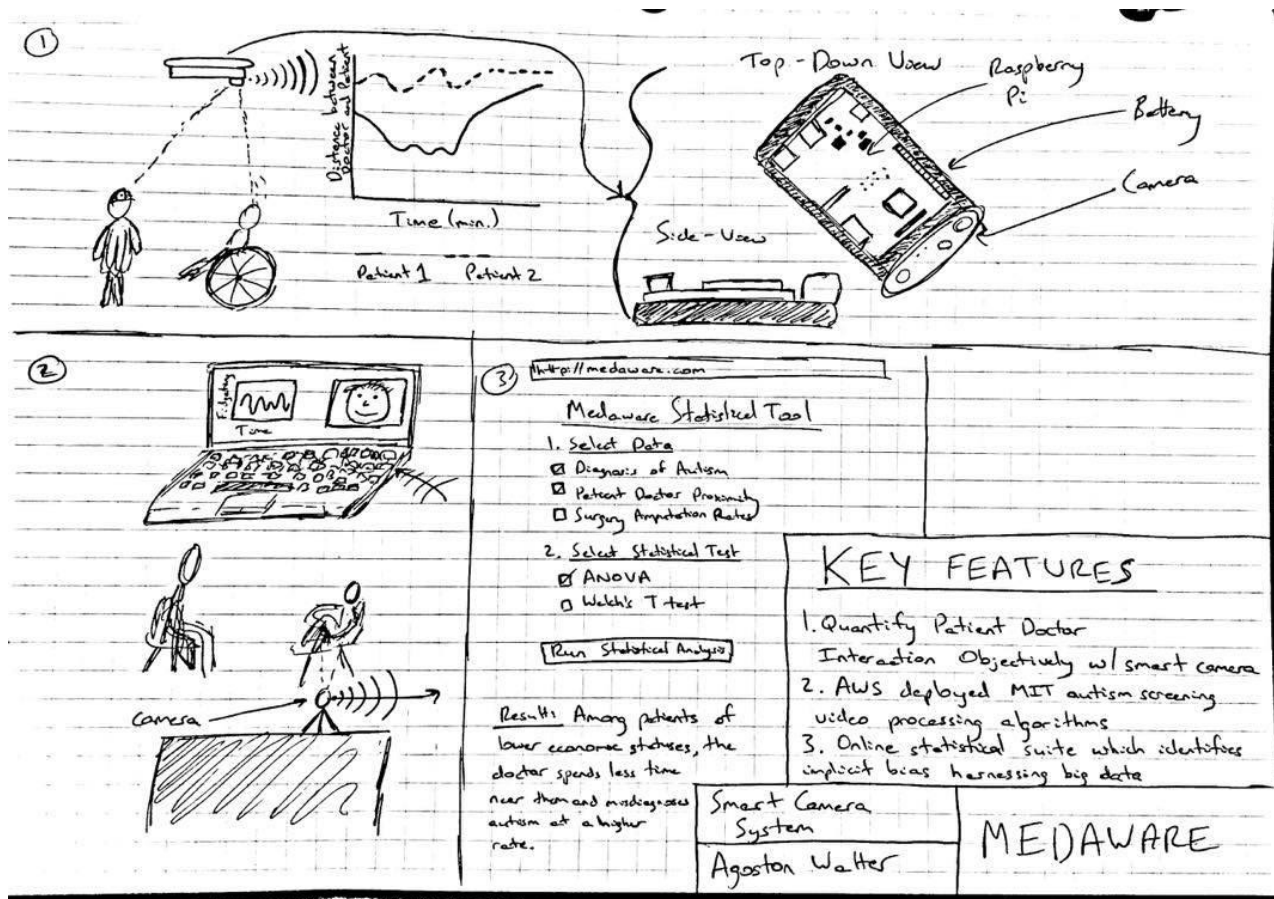 1
Distance between
Doctor and Patient
Time (min.)
Patient 1 Patient 2
Top-Down View
Raspberry
Pi
Battery
Camera
Side-View
2
Fidgeting
Time
Camera
3
http://medaware.com
Medaware Statistical Tool
1. Select Data
Diagnosis of Autism
Patient Doctor Proximity
Surgery Amputation Rates
2. Select Statistical Test
ANOVA
Welch's T test
Run Statistical Analysis
Result: Among patients of
lower economic statuses, the
doctor spends less time
near them and misdiagnoses
autism at a higher
rate.
KEY FEATURES
1. Quantify Patient Doctor
Interaction Objectively w/ smart camera
2. AWS deployed MIT autism screening
video processing algorithms
3. Online statistical suite which identifies
implicit bias harnessing big data
Smart Camera
System
Agoston Walter
MEDAWARE